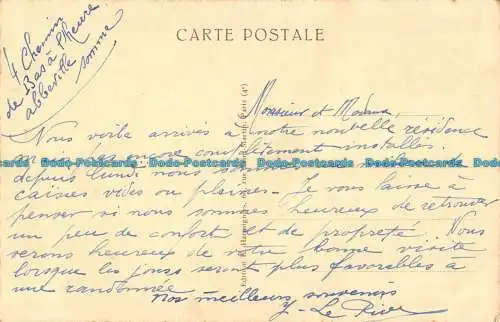 4 Chemin
de Bas à l'heure
abbeville
somme
CARTE POSTALE
Monsieur et Madame,
Nous voila arrivés à notre nouvelle résidence
pas encore complètement installés.
Dodo-Postcards.com Dodo-Postcards.com Dodo-Postcards.com Dodo-Postcards.com
depuis lundi nous
caisses vides ou pleines. Je vous laisse à
penser si nous sommes heureux de retrouver
un peu de confort et de propreté. Nous
serons heureux de votre bonne visite
lorsque les jours seront plus favorables à
une randonnée
nos meilleurs souvenirs
Y. Le
Edition
Paris (4e)